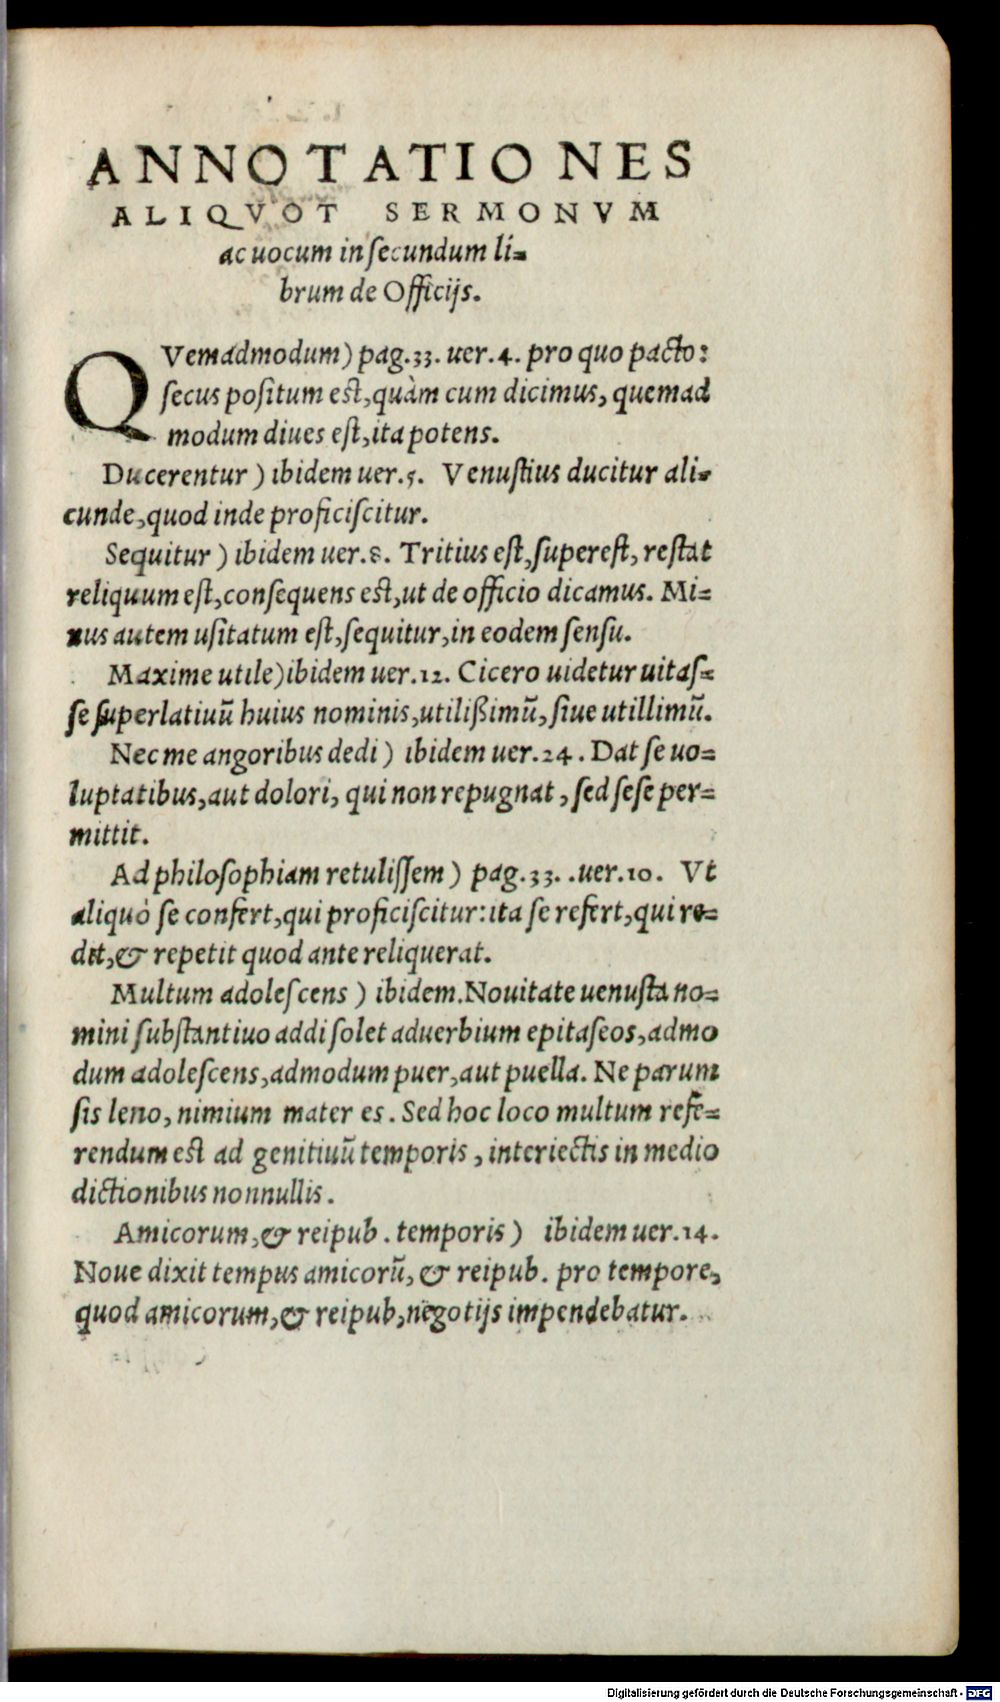 ANNOTATIONES
ALIQVOT SERMONVM
ac uocum in secundum li-
brum de Officijs.
QVemadmodum) pag.33. uer.4. pro quo pacto:
secus positum est, quàm cum dicimus, quemad
modum diues est, ita potens.
Ducerentur) ibidem uer.5. Venustius ducitur ali-
cunde, quod inde proficiscitur.
Sequitur) ibidem uer.8. Tritius est, superest, restat
reliquum est, consequens est, ut de officio dicamus. Mi-
nus autem usitatum est, sequitur, in eodem sensu.
Maxime utile) ibidem uer.12. Cicero uidetur uitas-
se superlatiuū huius nominis, utilißimū, siue utillimū.
Nec me angoribus dedi) ibidem uer.24. Dat se uo-
luptatibus, aut dolori, qui non repugnat, sed sese per-
mittit.
Ad philosophiam retulissem) pag.33. .uer.10. Vt
aliquò se confert, qui proficiscitur: ita se refert, qui re-
dit, & repetit quod ante reliquerat.
Multum adolescens) ibidem. Nouitate uenusta no-
mini substantiuo addi solet aduerbium epitaseos, admo
dum adolescens, admodum puer, aut puella. Ne parum
sis leno, nimium mater es. Sed hoc loco multum refe-
rendum est ad genitiuū temporis, interiectis in medio
dictionibus nonnullis.
Amicorum, & reipub. temporis) ibidem uer.14.
Noue dixit tempus amicorū, & reipub. pro tempore,
quod amicorum, & reipub, negotijs impendebatur.
Digitalisierung gefördert durch die Deutsche Forschungsgemeinschaft - DFG